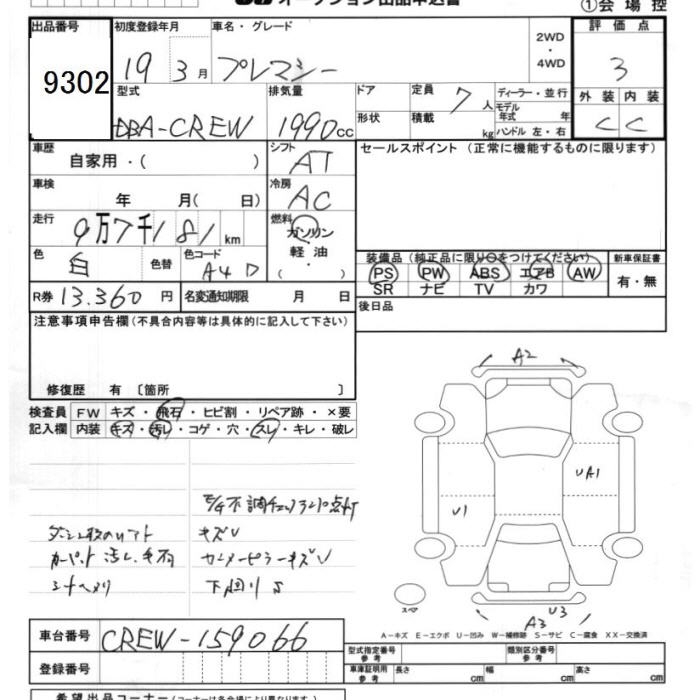 オークション出品申込書 ①会場控
出品番号 初度登録年月 車名・グレード 2WD・4WD 評価点
9302 19 3月 プレマシー 3
型式 排気量 ドア 定員 7人 ディーラー・並行 外装 内装
DBA-CREW 1990cc 形状 積載 kg モデル年式 年 C C
ハンドル 左・右
車歴 シフト セールスポイント (正常に機能するものに限ります)
自家用・( ) AT
車検 冷房
年 月( 日) AC
走行 燃料
9万7千181km ガソリン
色 色替 色コード 軽油
白 A4D ・( )
装備品 (純正品に限り○をつけてください) 新車保証書
PS PW ABS エアB AW 有・無
SR ナビ TV カワ
R券 13.360円 名変通知期限 月 日 後日品
注意事項申告欄 (不具合内容等は具体的に記入して下さい)
修復歴 有 〔箇所 〕
検査員 FW キズ・飛石・ヒビ割・リペア跡・×要
記入欄 内装 キズ・汚レ・コゲ・穴・スレ・キレ・破レ
A2
UA1
U1
不調チェックランプ点灯
キズU
カーペット汚レ
下回りS
U3
A3
スペア
A-キズ E-エクボ U-凹み W-補修跡 S-サビ C-腐食 XX-交換済
車台番号 CREW-159066
型式指定番号 参考 類別区分番号 参考
登録番号 車庫証明用 参考 長さ cm 幅 cm 高さ cm
希望出品コーナー